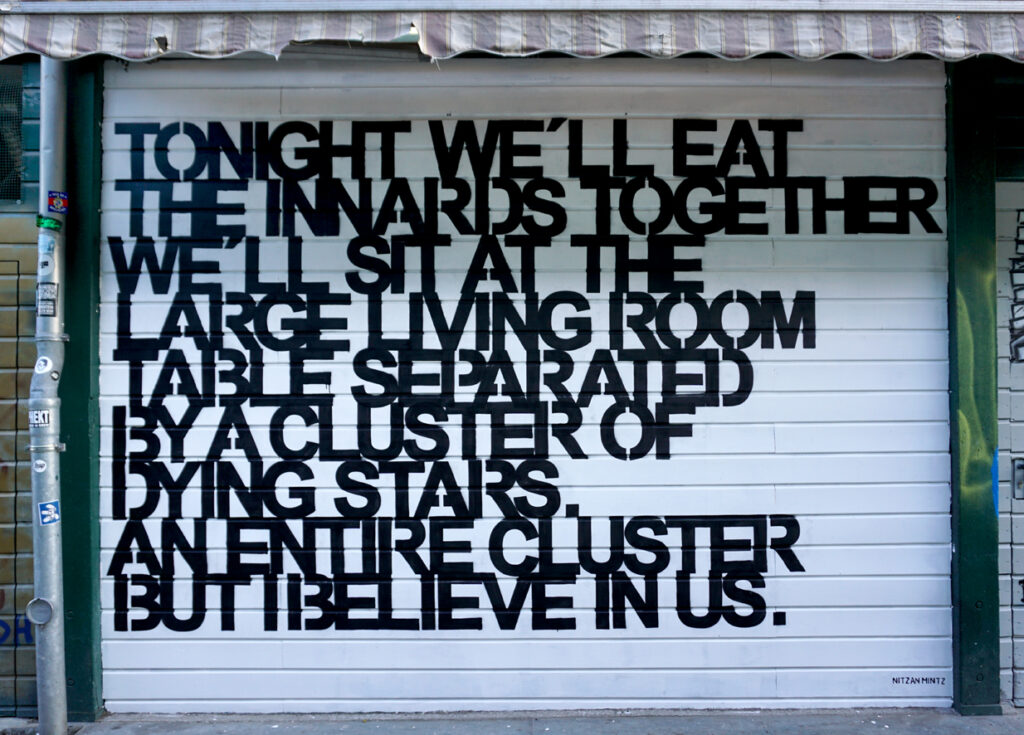 TONIGHT WE´LL EAT
THE INNARDS TOGETHER
WE´LL SIT AT THE
LARGE LIVING ROOM
TABLE SEPARATED
BY A CLUSTER OF
DYING STARS.
AN ENTIRE CLUSTER
BUT I BELIEVE IN US.
NITZAN MINTZ